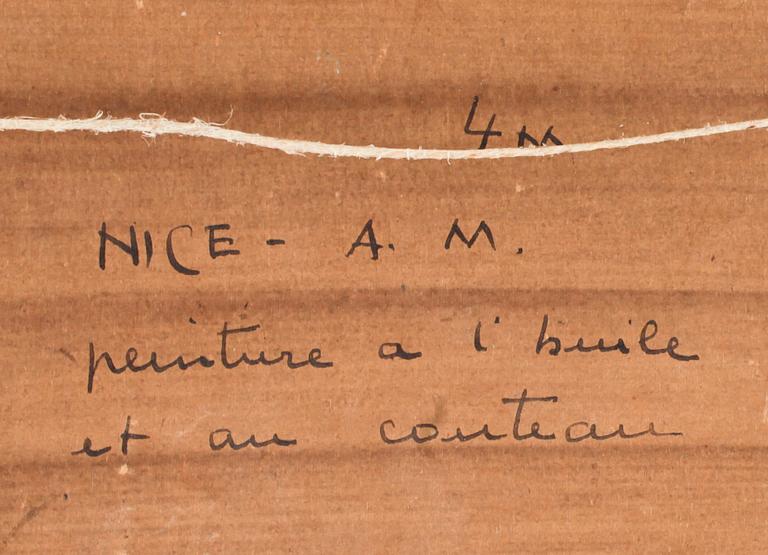 4 M
NICE - A. M.
peinture a l'huile
et au couteau